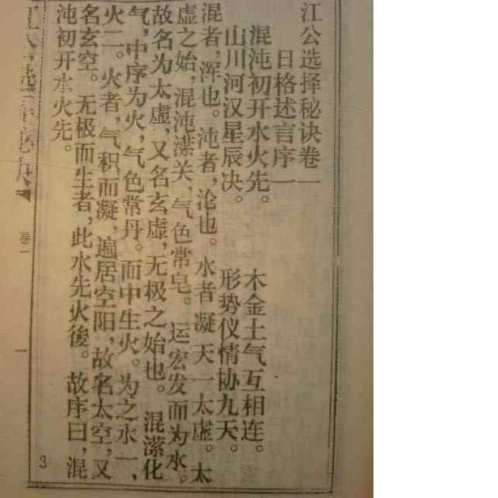 江公选择秘诀卷一
日格述言序一
混沌初开水火先。 木金土气互相连。
山川河汉星辰决。 形势仪情协九天。
混者,浑也。沌者,沦也。水者凝天一太虚。太
虚之始,混沌濛关,气色常皂。运宏发而为水。
故名为太虚,又名玄虚,无极之始也。混潆化
气,中序为火,气色常丹。而中生火。为之水一、
火二。火者,气积而凝,遍居空阳,故名太空,又
名玄空。无极而生者,此水先火後。故序曰,混
沌初开水火先。
卷一
一
3